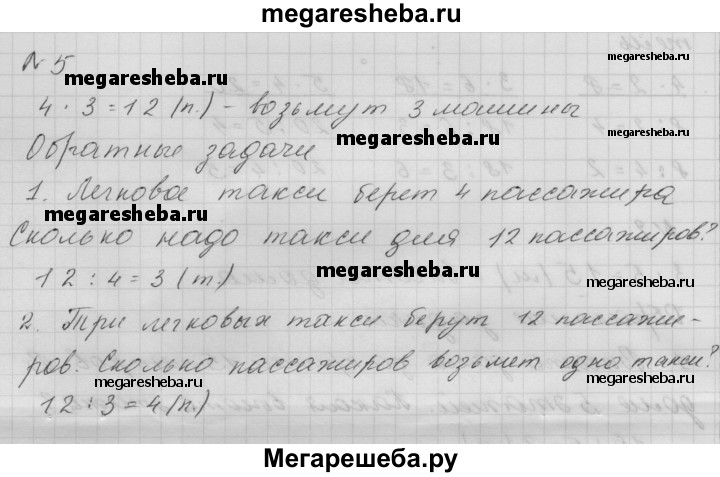 megaresheba.ru
№5
megaresheba.ru
megaresheba.ru
4 · 3 = 12 (п.) - возьмут 3 машины
Обратные задачи
megaresheba.ru
megaresheba.ru
1. Легковое такси берет 4 пассажира
megaresheba.ru
Сколько надо такси для 12 пассажиров?
12 : 4 = 3 (т.)
megaresheba.ru
megaresheba.ru
2. Три легковых такси берут 12 пассажи-
ров. Сколько пассажиров возьмет одно такси?
megaresheba.ru
megaresheba.ru
12 : 3 = 4 (п.)
Мегарешеба.ру